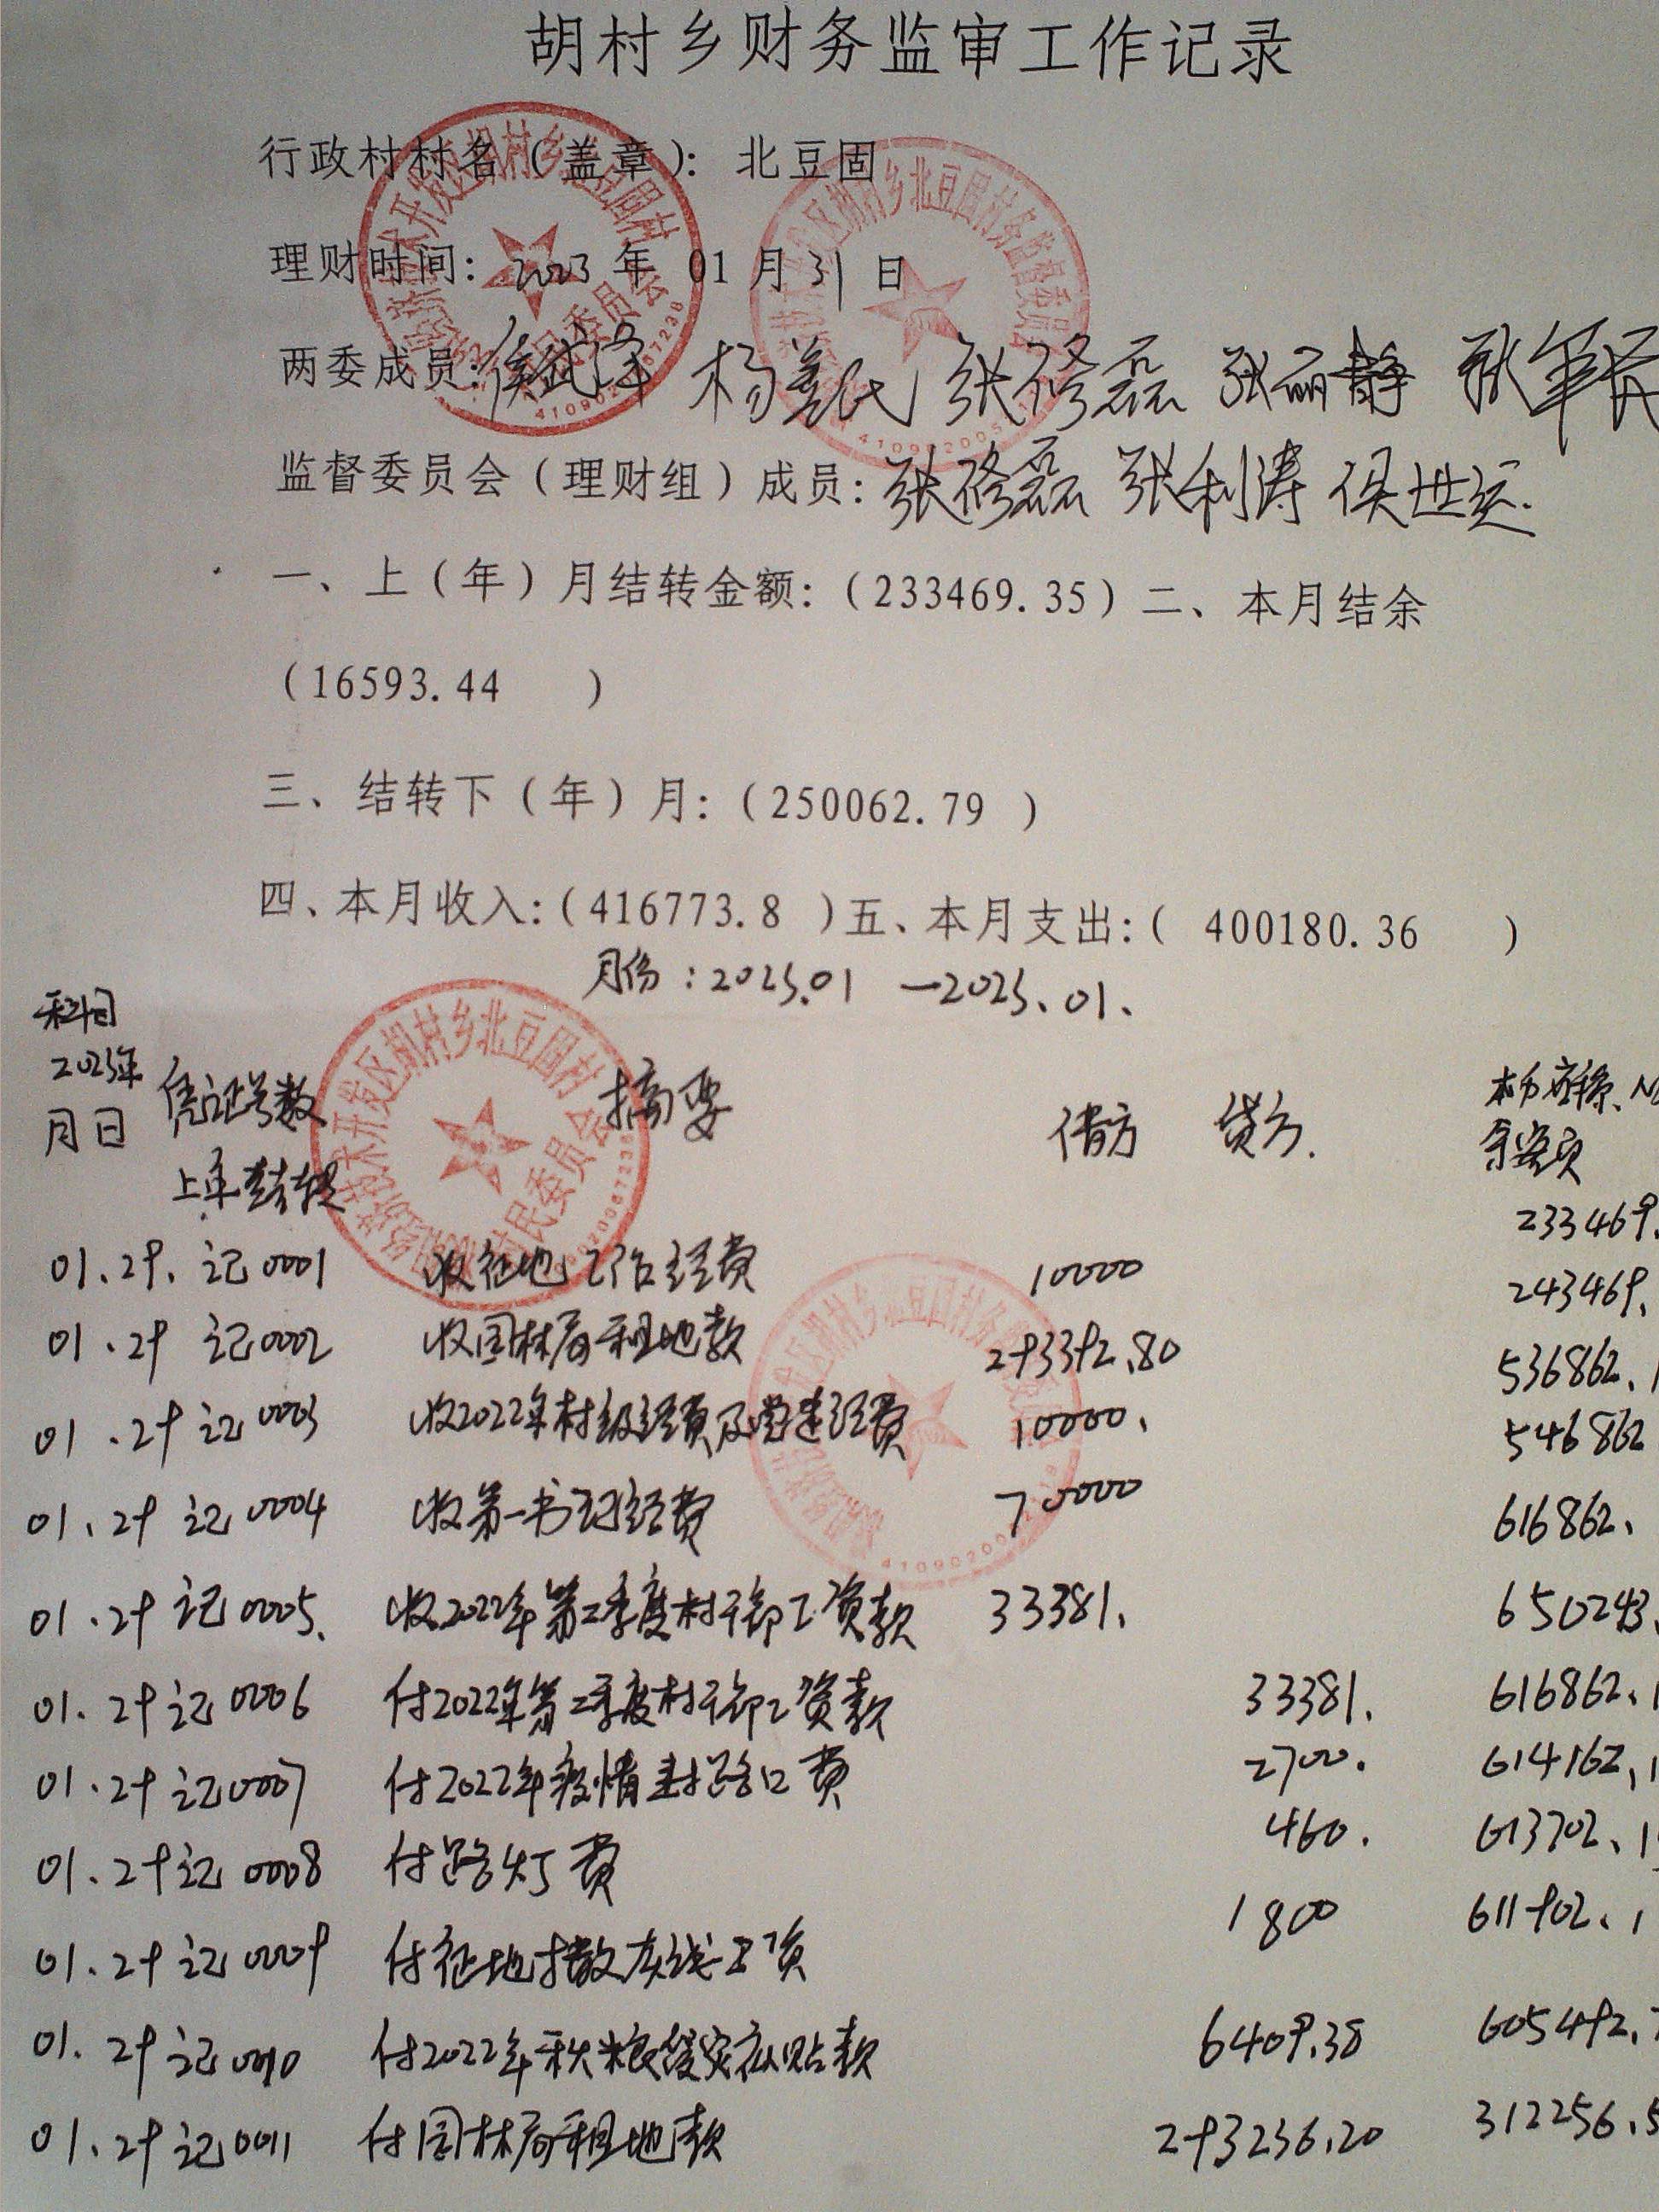 胡村乡财务监审工作记录
行政村村名（盖章）: 北豆固
理财时间: 2023 年 01 月 31 日
两委成员: 侯武泽 杨善民 张修磊 张丽静 张军民
监督委员会（理财组）成员: 张修磊 张利涛 侯世运.
一、上（年）月结转金额:（233469.35）二、本月结余
（16593.44 ）
三、结转下（年）月:（250062.79 ）
四、本月收入:（416773.8 ）五、本月支出:（ 400180.36 ）
月份:2023.01 —2023.01.
科目
2023年
月日 凭证号数 摘要 借方 贷方.
余额
上年结转 233469.
01.29. 记0001 收征地工作经费 10000 243469.
01.29 记0002 收园林局租地款 293392.80 536862.1
01.29 记0003 收2022年村级经费及党建经费 10000. 546862
01.29 记0004 收第一书记经费 70000 616862.
01.29 记0005. 收2022年第二季度村干部工资款 33381. 650243.
01.29 记0006 付2022年第二季度村干部工资款 33381. 616862.1
01.29 记0007 付2022年疫情封路口费 2700. 614162.1
01.29 记0008 付路灯费 460. 613702.1
01.29 记0009 付征地撒灰线工资 1800 611902.1
01.29 记0010 付2022年秋粮救灾补贴款 6409.38 605492.7
01.29 记0011 付园林局租地款 293236.20 312256.5